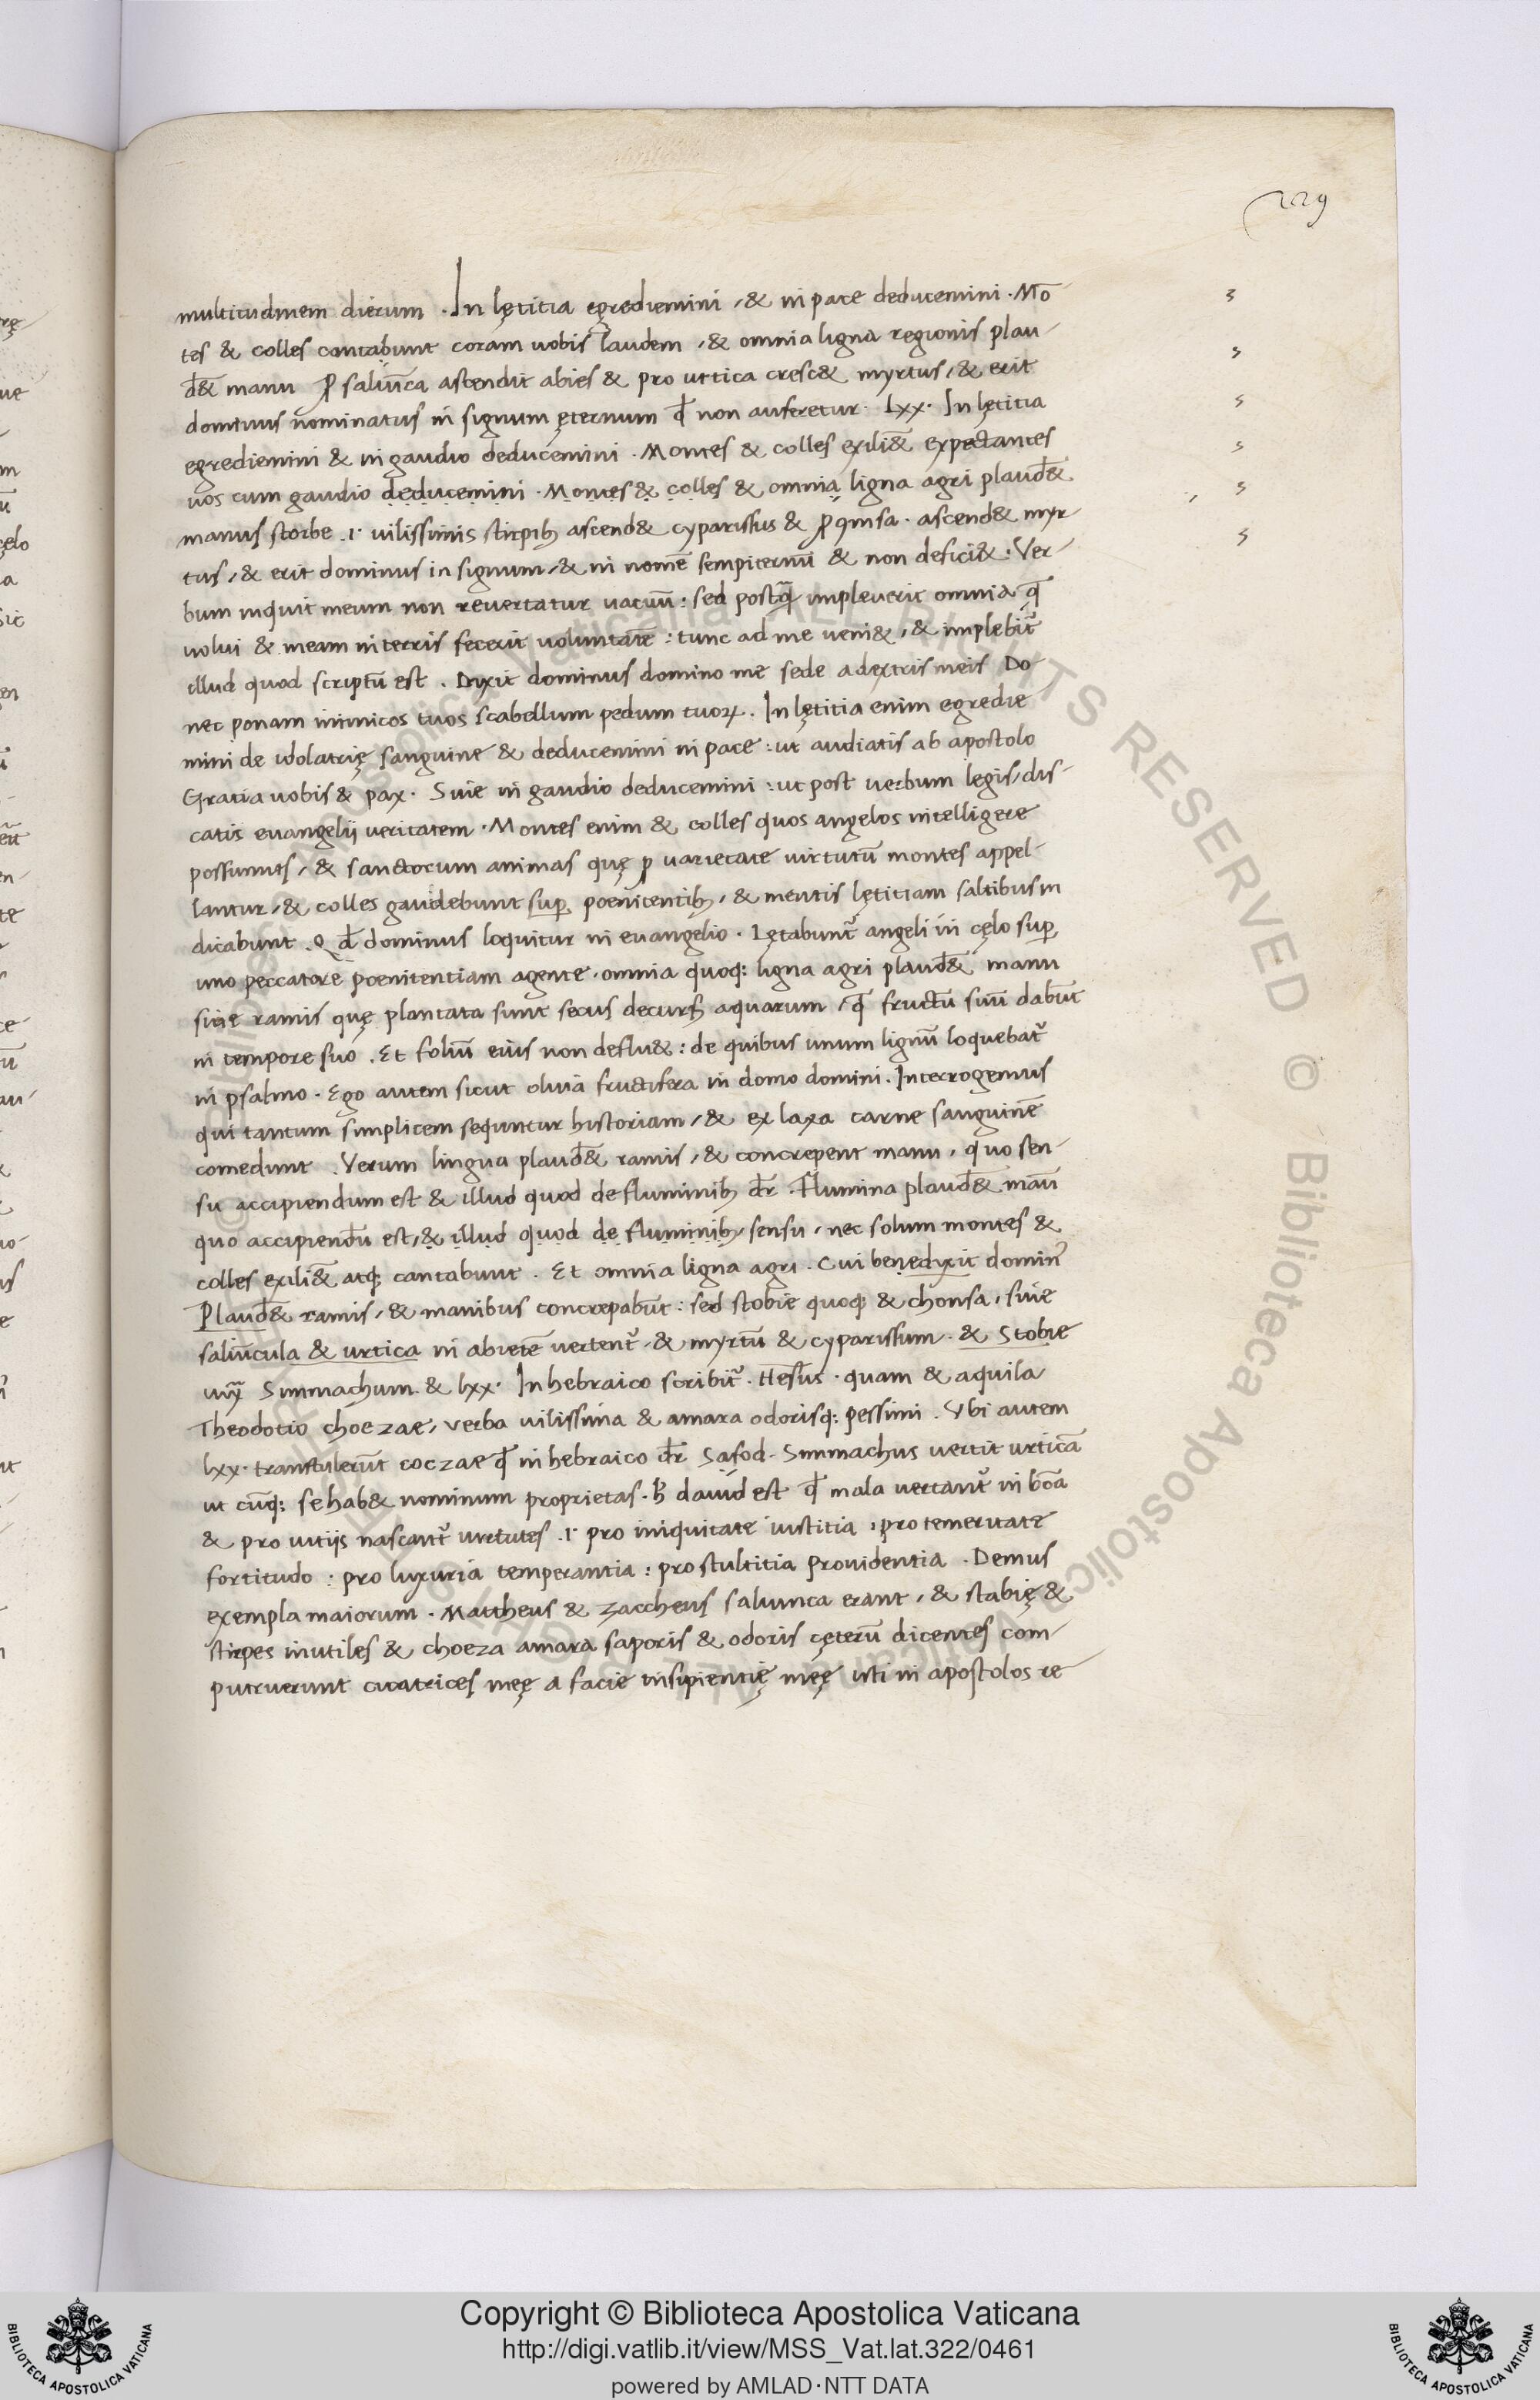 229
multitudinem dierum . In lętitia egrediemini , & in pace deducemini . Mō
tes & colles cantabunt coram uobis laudem , & omnia ligna regionis plau
d̄& manu ꝓ saliūca ascendit abies & pro urtica cresc& myrtus , & erit
dominus nominatus in signum ęternum qđ non auferetur . lxx . In lętitia
egrediemini & in gaudio deducemini . Montes & colles exili&̄ expectantes
uos cum gaudio deducemini . Montes & colles & omnia ligna agri plaud̄&
manus storbe .i. uilissimis stirpib; ascend& cyparissus & ꝓ qmsa . ascend& myr-
tus , & erit dominus in signum , & in nomē sempiternū & non defici& . Ver-
bum inquit meum non reuertatur uacuū : sed postq̄ impleuerit omnia q̄
uolui & meam in terris fecerit uoluntatē : tunc ad me ueni& , & implebit᷑
illud quod scriptū est . Dixit dominus domino me sede a dextris meis Do-
nec ponam inimicos tuos scabellum pedum tuoꝝ . In lętitia enim egredie
mini de idolatrię sanguine & deducemini in pace : ut audiatis ab apostolo
Gratia uobis & pax . Siue in gaudio deducemini : ut post uerbum legis , dis-
catis euangelij ueritatem . Montes enim & colles quos angelos intelligere
possumus , & sanctorum animas quę ꝓ uarietate uirtutū montes appel-
lantur , & colles gaudebunt suꝑ poenitentib; , & mentis lętitiam saltibus in
dicabunt . Qđ dominus loquitur in euangelio . Lętabunt᷑ angeli in cęlo suꝑ
uno peccatore poenitentiam agente . omnia quoq; ligna agri plaud̄& manu
siue ramis quę plantata sunt secus decurs; aquarum , q̄ fructū suū dabūt
in tempore suo . Et foliū eius non deflu& : de quibus unum lignū loquebat᷑
in psalmo . Ego autem sicut oliua fructifera in domo domini . Interrogemus
qui tantum simplicem sequntur historiam , & ex laxa carne sanguinē
comedunt . Verum lingua plaud̄& ramis , & concrepent manu , quo sen-
su accipiendum est & illud quod de fluminib; dr̄ . Flumina plaud̄& manū
quo accipiendū est , & illud quod de fluminib; sensu , nec solum montes &
colles exili&̄ atq; cantabunt . Et omnia ligna agri . Cui benedixit dominꝰ
Plaud̄& ramis , & manibus concrepabūt : sed stobie quoq; & chonsa , siue
saliūcula & urtica in abietē uertent᷑ , & myrtū & cyparissum . & Stobie
Simmachum . & lxx . In hebraico scribit᷑ . Hesus . quam & aquila
Theodotio choezae , uerba uilissima & amara odorisq; pessimi . Vbi autem
lxx . transtulerūt coczae qđ in hebraico dr̄ Safod . Simmachus uertit urticā
ut cūq; se hab& nominum proprietas . h̄ dauid est qđ mala uertant᷑ in bōa
& pro uitijs nascant᷑ uirtutes .i. pro iniquitate iustitia , pro temeritate
fortitudo : pro luxuria temperantia : pro stultitia prouidentia . Demus
exempla maiorum . Mattheus & zaccheus saliunca erant , & stabię &
stirpes inutiles & choeza amara saporis & odoris cęterū dicentes com-
putruerunt cicatrices meę a facie insipientię meę isti in apostolos re
Copyright © Biblioteca Apostolica Vaticana
http://digi.vatlib.it/view/MSS_Vat.lat.322/0461
powered by AMLAD·NTT DATA